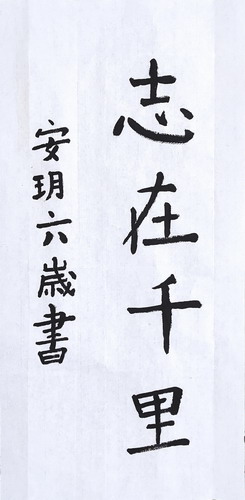 志在千里
安玥六歳書